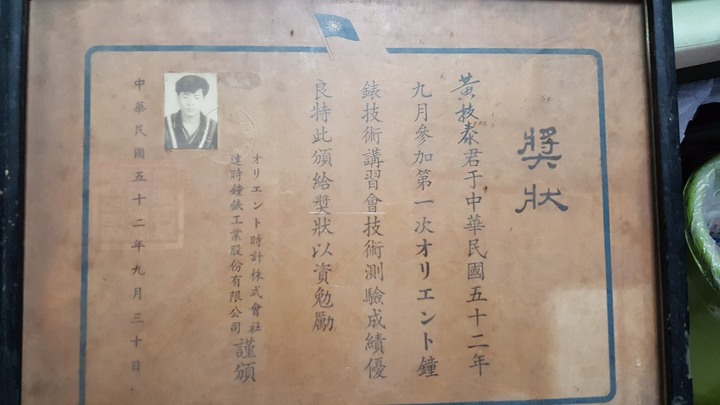 獎狀
黃枝泰君于中華民國五十二年
九月參加第一次オリエント鐘
錶技術講習會技術測驗成績優
良特此頒給獎狀以資勉勵
オリエント時計株式會社
達時鐘錶工業股份有限公司 謹頒
中華民國五十二年九月三十日